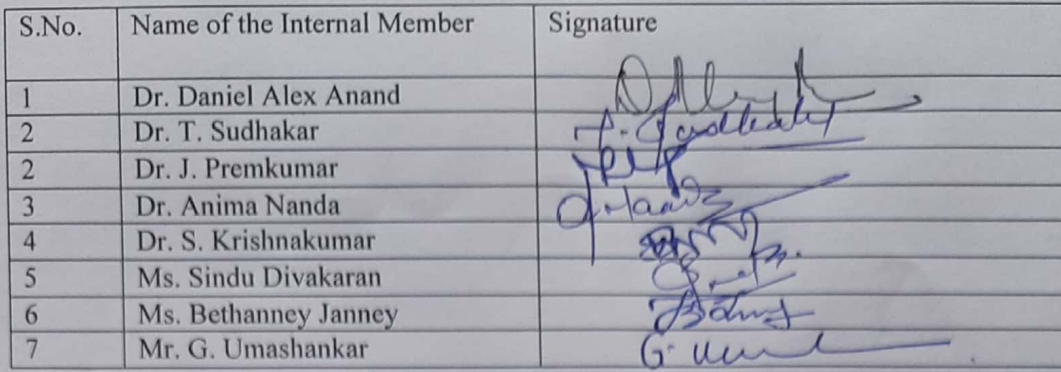 S.No. Name of the Internal Member Signature
1 Dr. Daniel Alex Anand
2 Dr. T. Sudhakar T. Sudhakar
2 Dr. J. Premkumar
3 Dr. Anima Nanda
4 Dr. S. Krishnakumar
5 Ms. Sindu Divakaran
6 Ms. Bethanney Janney
7 Mr. G. Umashankar G.